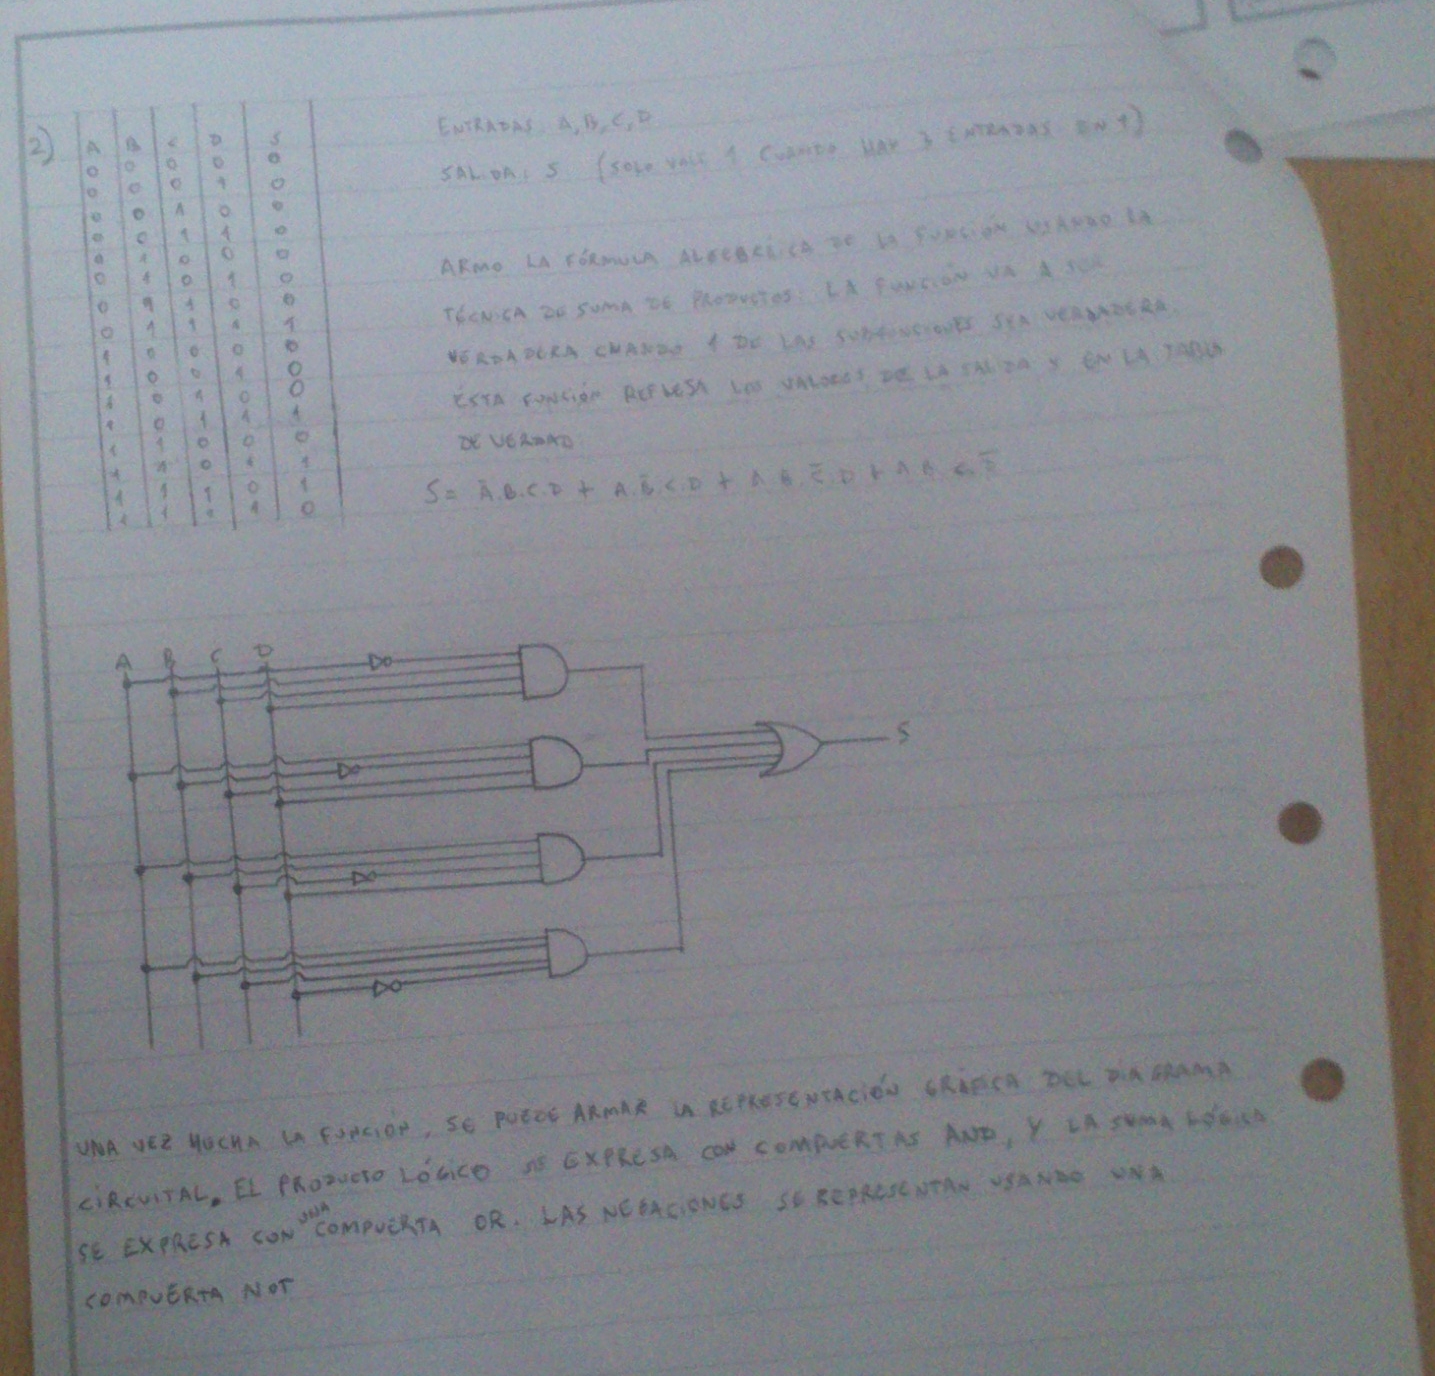 2)
A B C D S
0 0 0 0 0
0 0 0 1 0
0 0 1 0 0
0 0 1 1 0
0 1 0 0 0
0 1 0 1 0
0 1 1 0 0
0 1 1 1 1
1 0 0 0 0
1 0 0 1 0
1 0 1 0 0
1 0 1 1 1
1 1 0 0 0
1 1 0 1 1
1 1 1 0 1
1 1 1 1 0
ENTRADAS A, B, C, D
SALIDA: S (SOLO VALE 1 CUANDO HAY 3 ENTRADAS EN 1)
ARMO LA FÓRMULA ALGEBRÁICA DE LA FUNCIÓN USANDO LA
TÉCNICA DE SUMA DE PRODUCTOS: LA FUNCIÓN VA A SER
VERDADERA CUANDO 1 DE LAS SUBFUNCIONES SEA VERDADERA.
ESTA FUNCIÓN REFLEJA LOS VALORES DE LA SALIDA Y EN LA TABLA
DE VERDAD
S = A̅.B.C.D + A.B̅.C.D + A.B.C̅.D + A.B.C.D̅
A B C D
S
UNA VEZ HECHA LA FUNCIÓN, SE PUEDE ARMAR LA REPRESENTACIÓN GRÁFICA DEL DIAGRAMA
CIRCUITAL. EL PRODUCTO LÓGICO SE EXPRESA CON COMPUERTAS AND, Y LA SUMA LÓGICA
SE EXPRESA CON UNA COMPUERTA OR. LAS NEGACIONES SE REPRESENTAN USANDO UNA
COMPUERTA NOT